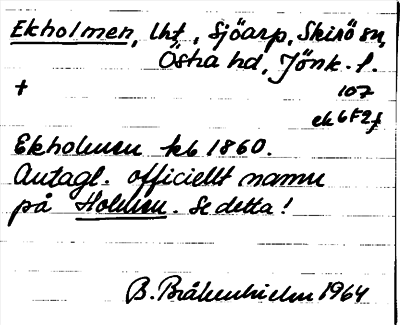 Ekholmen, lht, Sjöarp, Skirö sn,
Östra hd, Jönk. l.
+ 107
ek 6F2f
Ekholmen kb 1860.
Antagl. officiellt namn
på Holmen. Se detta!
B. Bråkenhielm 1964